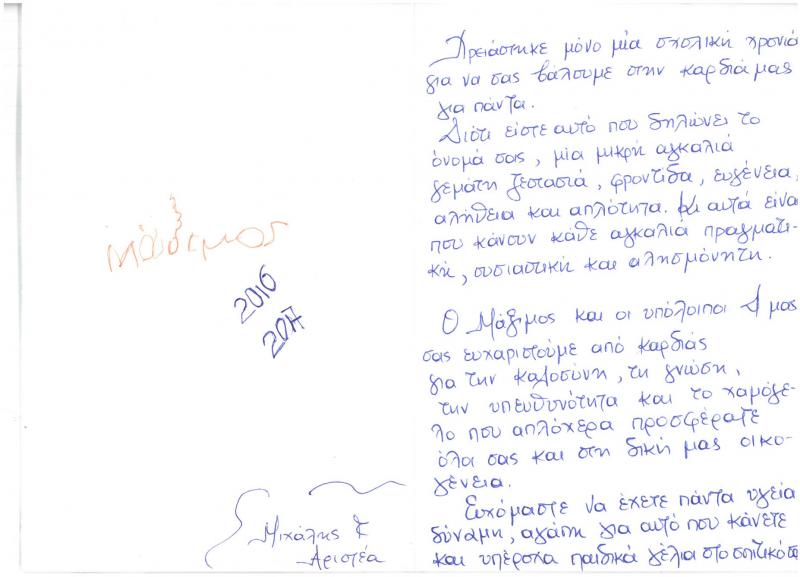 Μάξιμος
2016
2017
Μιχάλης &
Αριστέα
Χρειάστηκε μόνο μία σχολική χρονιά
για να σας βάλουμε στην καρδιά μας
για πάντα.
Διότι είστε αυτό που δηλώνει το
όνομά σας, μία μικρή αγκαλιά
γεμάτη ζεστασιά, φροντίδα, ευγένεια,
αλήθεια και απλότητα. Κι αυτά είναι
που κάνουν κάθε αγκαλιά πραγματι-
κή, ουσιαστική και αλησμόνητη.
Ο Μάξιμος και οι υπόλοιποι 4 μας
σας ευχαριστούμε από καρδιάς
για την καλοσύνη, τη γνώση,
την υπευθυνότητα και το χαμόγε-
λο που απλόχερα προσφέρατε
όλα σας και στη δική μας οικο-
γένεια.
Ευχόμαστε να έχετε πάντα υγεία
δύναμη, αγάπη για αυτό που κάνετε
και υπέροχα παιδικά γέλια στο σπιτικό σας